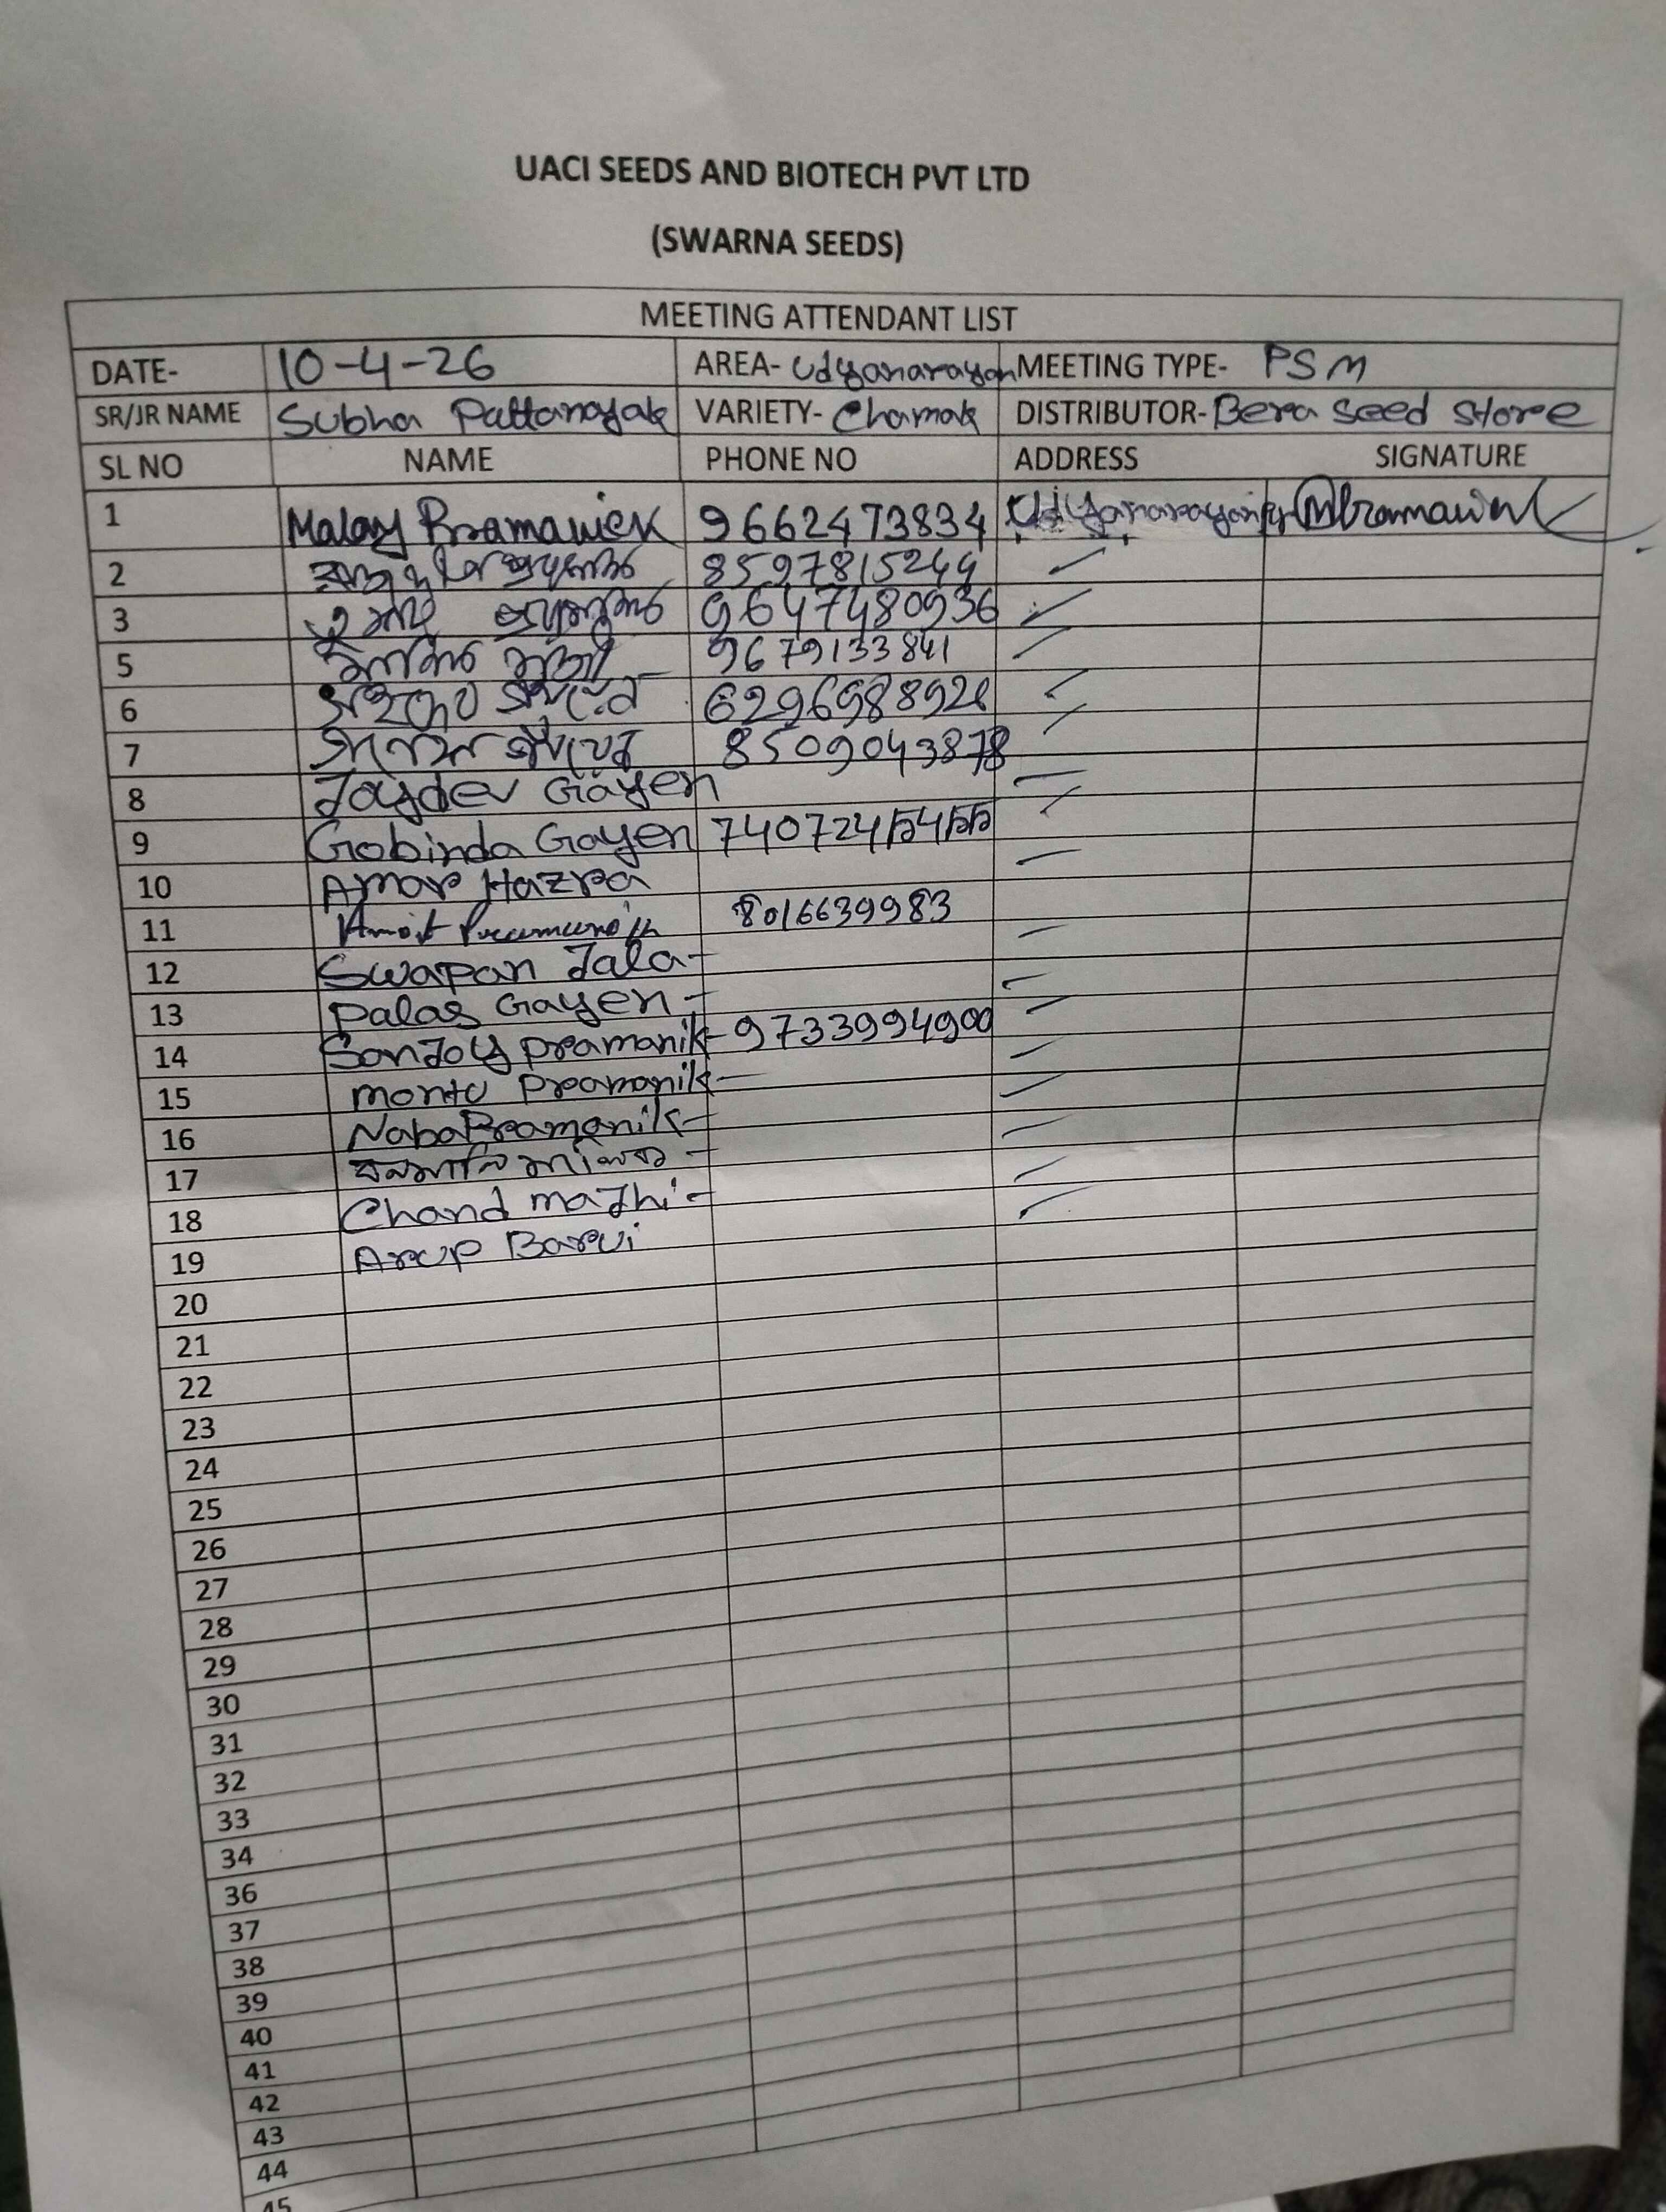 UACI SEEDS AND BIOTECH PVT LTD
(SWARNA SEEDS)
MEETING ATTENDANT LIST
DATE- 10-4-26 AREA- Udyanarayan MEETING TYPE- PSM
SR/JR NAME Subha Pattanayak VARIETY- Chamak DISTRIBUTOR- Bera Seed Store
SL NO NAME PHONE NO ADDRESS SIGNATURE
1 Malay Pramanick 9662473834
2 8597815244
3 9647480936
5 9679133841
6 6296988928
7 8509043878
8 Joydev Gayen
9 Gobinda Gayen
10 Amar Hazra
11 8016639983
12 Swapan Jala -
13 Palas Gayen -
14 Sanjoy pramanik - 9733994900
15 montu Pramanik -
16 Naba Pramanik -
17
18 Chand majhi -
19 Arup Barui
20
21
22
23
24
25
26
27
28
29
30
31
32
33
34
36
37
38
39
40
41
42
43
44
45